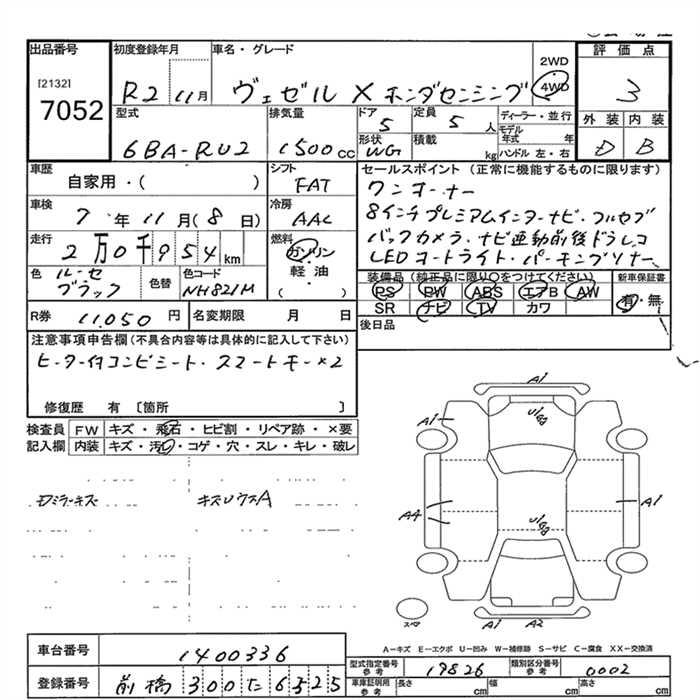 出品番号 初度登録年月 車名・グレード 評価点
[2132]
7052
R2 11月 ヴェゼル X ホンダセンシング 2WD 4WD 3
型式 排気量 ドア 定員 ディーラー・並行 外装 内装
6BA-RU2 1500cc 5 5人 モデル年式 年 D B
形状 積載 kg ハンドル 左・右
WG
車歴 シフト セールスポイント(正常に機能するものに限ります)
自家用・( ) FAT ワンオーナー
車検 冷房 8インチプレミアムインターナビ・フルセグ
7年11月(8日) AAC バックカメラ・ナビ連動前後ドラレコ
走行 燃料 LEDオートライト・パーキングソナー
2万0千954km ガソリン
軽油
( )
色 ルーセ ブラック 色替 色コード NH821M
装備品(純正品に限り○をつけてください) 新車保証書
PS PW ABS エアB AW 有・無
SR ナビ TV カワ
R券 11,050円 名変期限 月 日 後日品
注意事項申告欄(不具合内容等は具体的に記入して下さい)
ヒーター付コンビシート・スマートキー×2
修復歴 有 [箇所 ]
検査員 FW キズ・飛石・ヒビ割・リペア跡・×要
記入欄 内装 キズ・汚れ・コゲ・穴・スレ・キレ・破レ
A1
A1 U/WB
Dミラーキズ キズUウスA
A4 A1
U/WB
スペア
A1 A2
A-キズ E-エクボ U-凹み W-補修跡 S-サビ C-腐食 XX-交換済
車台番号 1400336
型式指定番号 参考 19826 類別区分番号 参考 0002
登録番号 前橋 300 た 6525
車庫証明用 参考 長さ cm 幅 cm 高さ cm